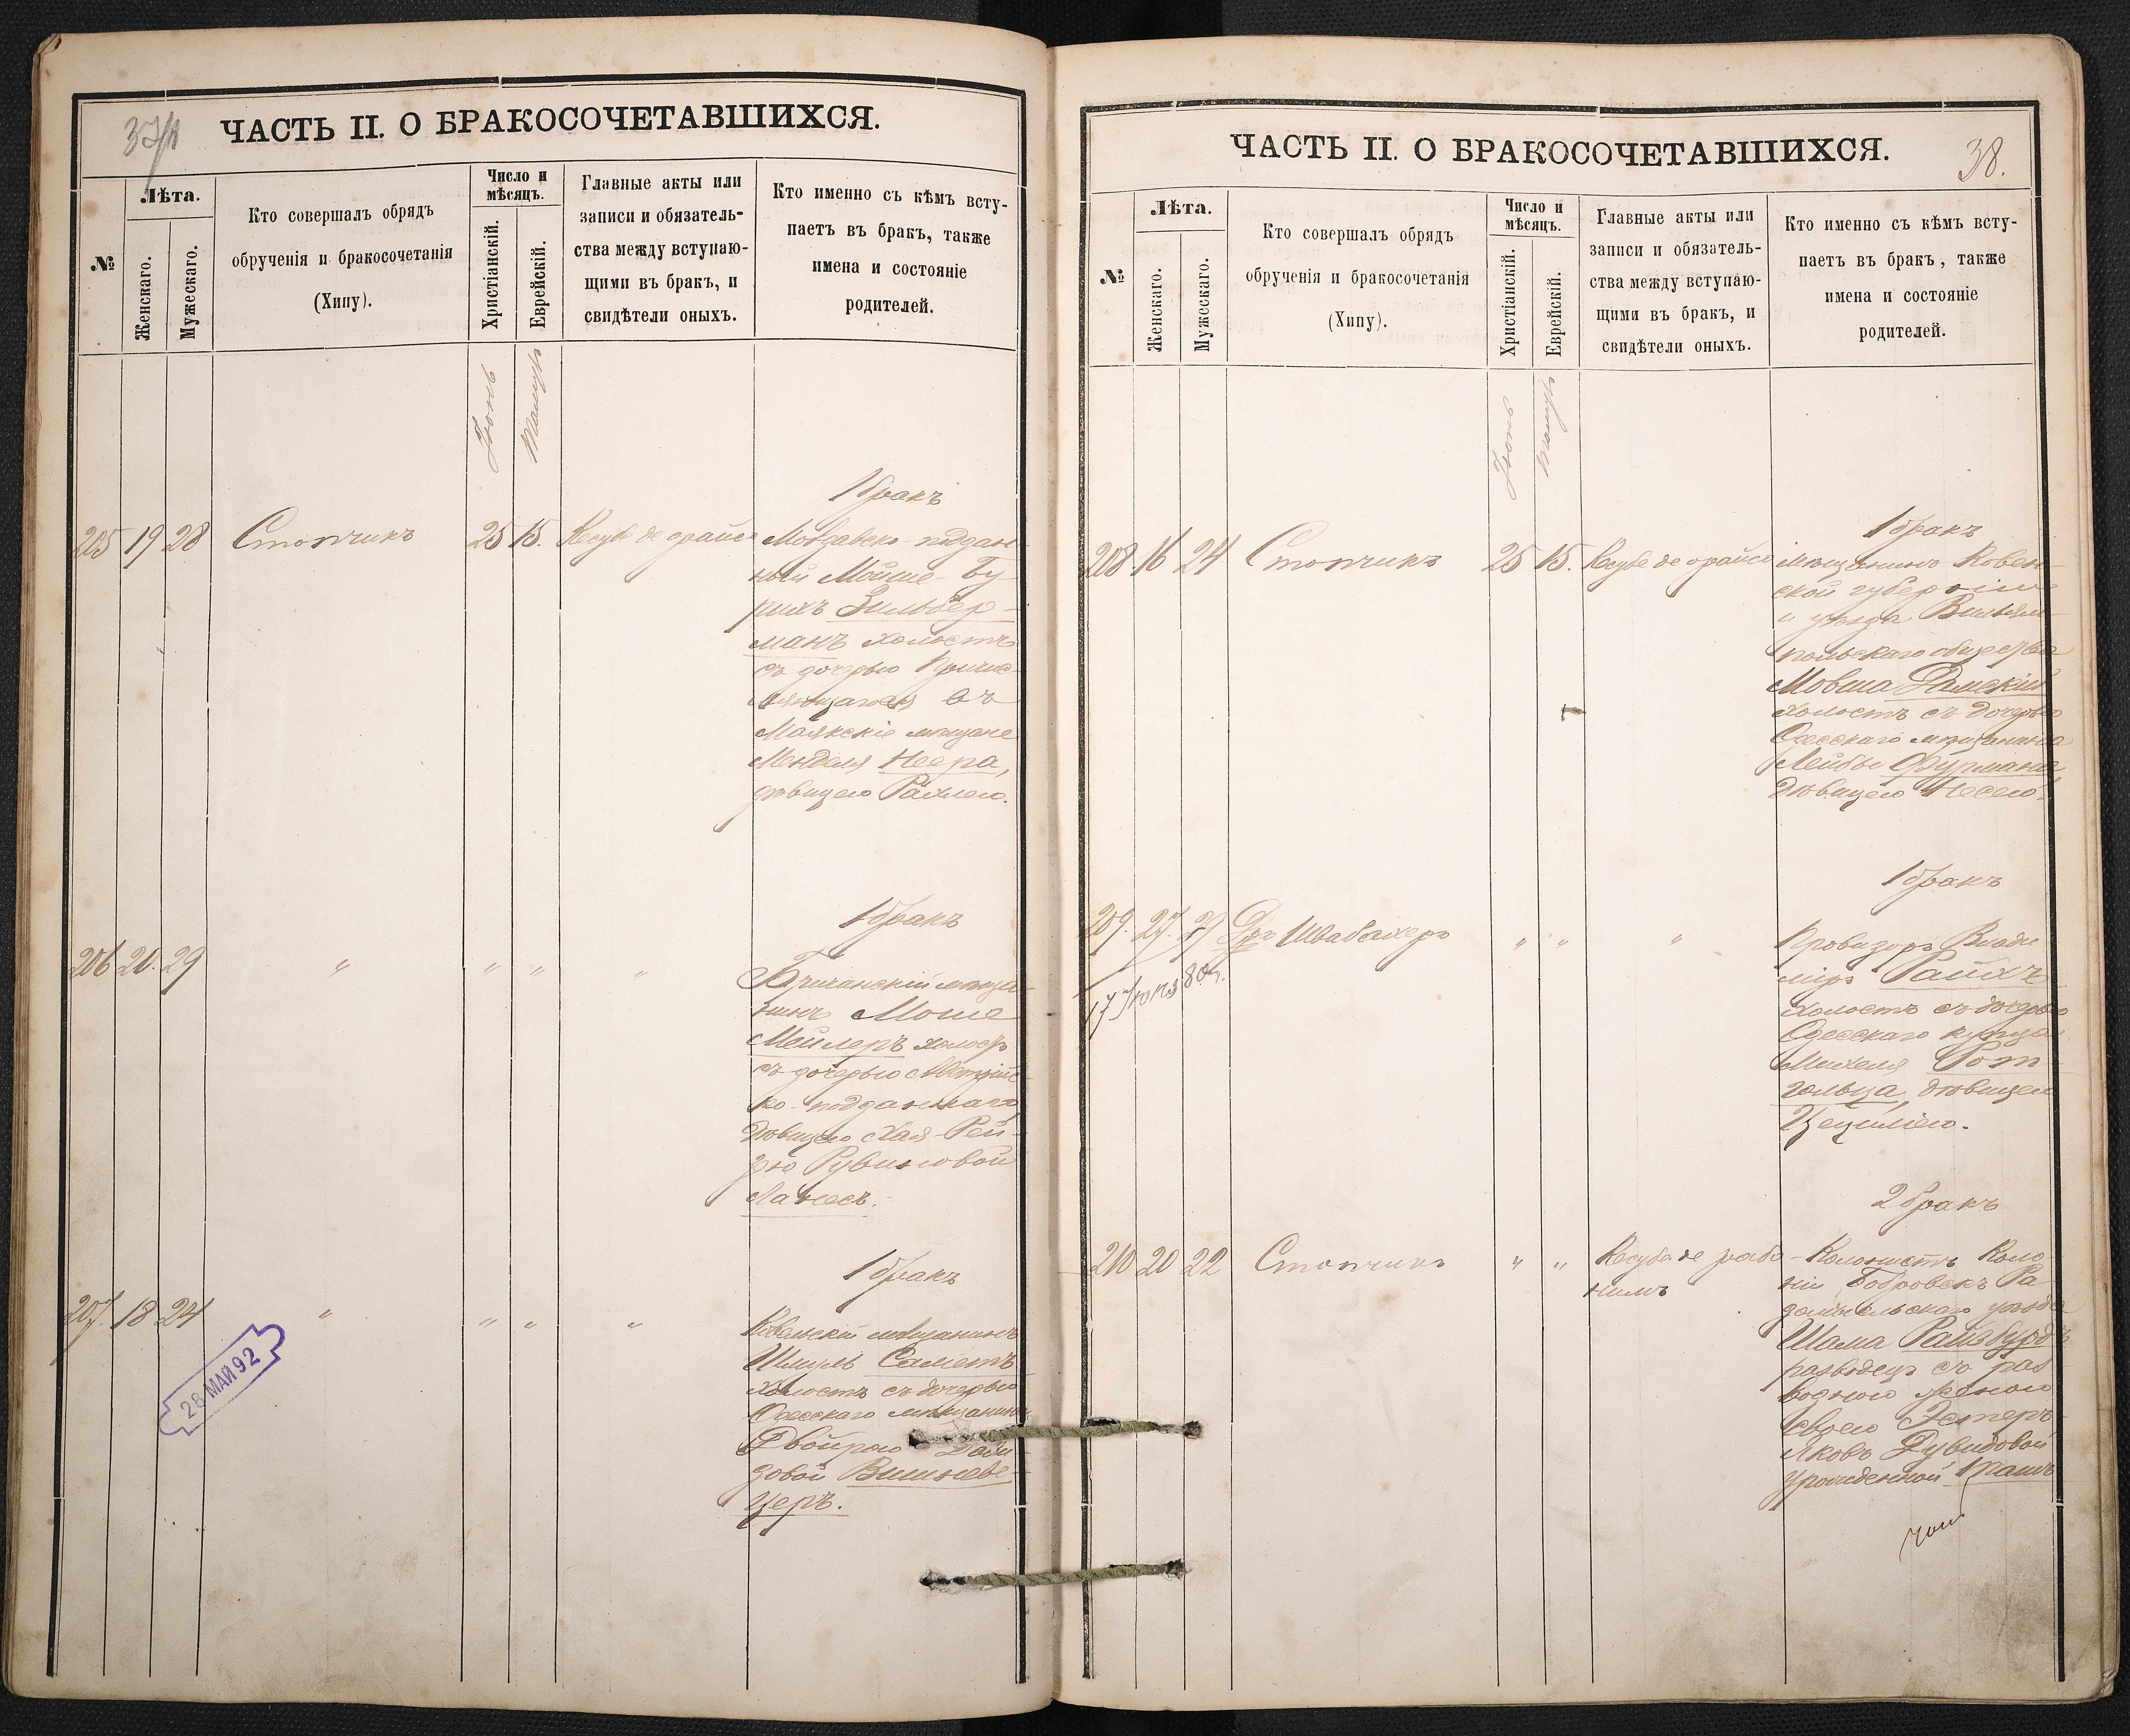 37/н
ЧАСТЬ II. О БРАКОСОЧЕТАВШИХСЯ.
№
Лѣта.
Женскаго.
Мужескаго.
Кто совершалъ обрядъ
обрученія и бракосочетанія
(Хипу).
Число и
мѣсяцъ.
Христіанскій.
Еврейскій.
Главные акты или
записи и обязатель-
ства между вступаю-
щими въ бракъ, и
свидѣтели оныхъ.
Кто именно съ кѣмъ всту-
паетъ въ бракъ, также
имена и состояніе
родителей.
Іюнь
Тамузъ
1 бракъ
205 19 28 Стопчикъ 25 15. Кесубе де орайсо Молдавско-поддан-
ный Мойше-Бу-
рихъ Зильбер-
манъ холостъ
съ дочерью Причис-
ляющагося въ
Маякскіе мѣщане
Менделя Неера,
дѣвицею Рахлею.
1 бракъ
206 20. 29 " " " " Бричанскій мѣща-
нинъ Моше
Мейлеръ холостъ
съ дочерью Австрійс-
ко-подданнаго,
дѣвицею Хая-Рей-
зею Рувиновой
Ланесъ.
1 бракъ
207. 18 24 " " " " Ковенскій мѣщанинъ
Шмуль Саметъ
холостъ съ дочерью
Одесскаго мѣщанина
Двойрою Дави-
довой Вишневе-
церъ.
28 МАЙ 92
38.
ЧАСТЬ II. О БРАКОСОЧЕТАВШИХСЯ.
№
Лѣта.
Женскаго.
Мужескаго.
Кто совершалъ обрядъ
обрученія и бракосочетанія
(Хипу).
Число и
мѣсяцъ.
Христіанскій.
Еврейскій.
Главные акты или
записи и обязатель-
ства между вступаю-
щими въ бракъ, и
свидѣтели оныхъ.
Кто именно съ кѣмъ всту-
паетъ въ бракъ, также
имена и состояніе
родителей.
Іюнь
Тамузъ
1 бракъ
208. 16 24 Стопчикъ 25 15. Кесубе де орайсо мѣщанинъ Ковен-
ской губерніи
и уѣзда Вильям-
польскаго общества
Мовша Рамскій
холостъ съ дочерью
Одесскаго мѣщанина
Лейбы Фурмана,
дѣвицею Несею.
1 бракъ
209. 27. 29 Др Швабахеръ " " " Провизоръ Влади-
міръ Райхъ
холостъ съ дочерью
Одесскаго купца
Михеля Рот-
гольца, дѣвицею
Цецилією.
17 Іюня 80г.
2 бракъ
210 20 22 Стопчикъ " " Кесубе де рабо- Колонистъ Коло-
нимъ ніи Бобровекъ Ра-
домысльскаго уѣзда
Шама Райбурдъ
разводецъ съ раз-
водною женою
своею Эстеръ-
Яковъ Дувидовой
урожденной